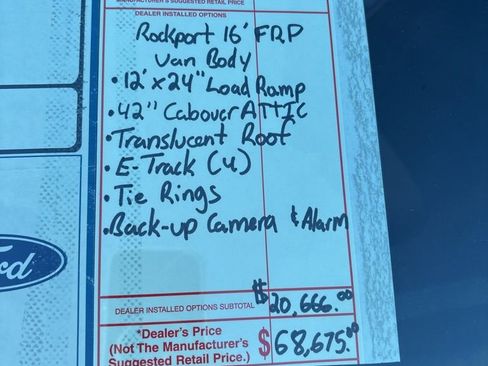 MANUFACTURER'S SUGGESTED RETAIL PRICE
DEALER INSTALLED OPTIONS
Rockport 16' FRP
Van Body
• 12' x 24" Load Ramp
• 42" Cabover ATTIC
• Translucent Roof
• E-Track (4)
• Tie Rings
• Back-up Camera & Alarm
Ford
DEALER INSTALLED OPTIONS SUBTOTAL $20,666.00
*Dealer's Price
(Not The Manufacturer's
Suggested Retail Price.) $68,675.00